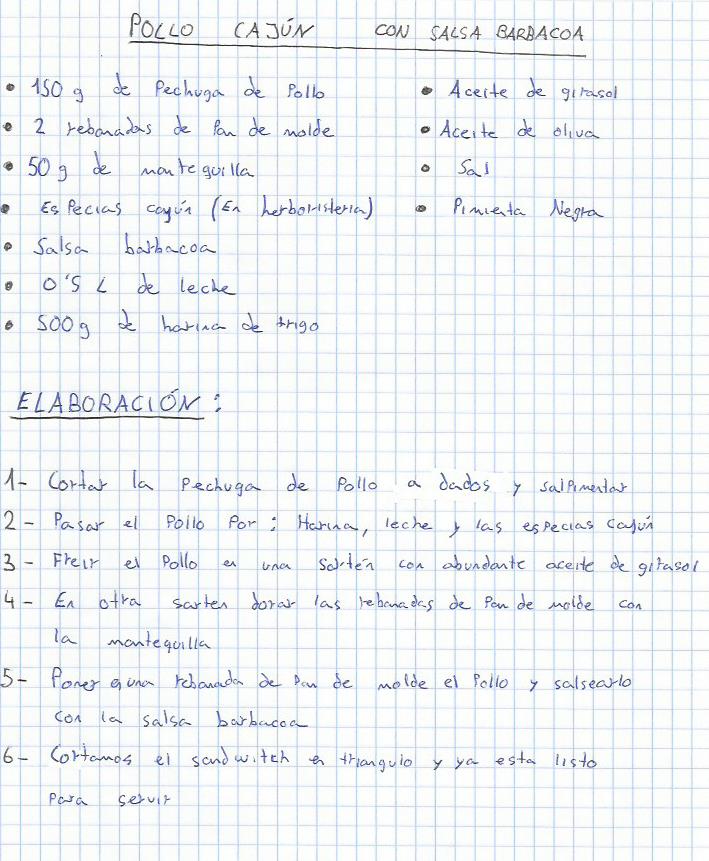 POLLO CAJÚN CON SALSA BARBACOA
• 150 g de Pechuga de Pollo
• 2 rebanadas de Pan de molde
• 50 g de mantequilla
• Especias cajún (En herboristeria)
• Salsa barbacoa
• 0'5 L de leche
• 500g de harina de trigo
• Aceite de girasol
• Aceite de oliva
• Sal
• Pimienta Negra
ELABORACIÓN:
1- Cortar la Pechuga de Pollo a dados y salpimentar
2- Pasar el Pollo Por: Harina, leche y las especias cajún
3- Freir el Pollo en una sartén con abundante aceite de girasol
4- En otra sarten dorar las rebanadas de Pan de molde con
la mantequilla
5- Poner a una rebanada de Pan de molde el Pollo y salsearlo
con la salsa barbacoa
6- Cortamos el sandwitch en triangulo y ya esta listo
Para servir